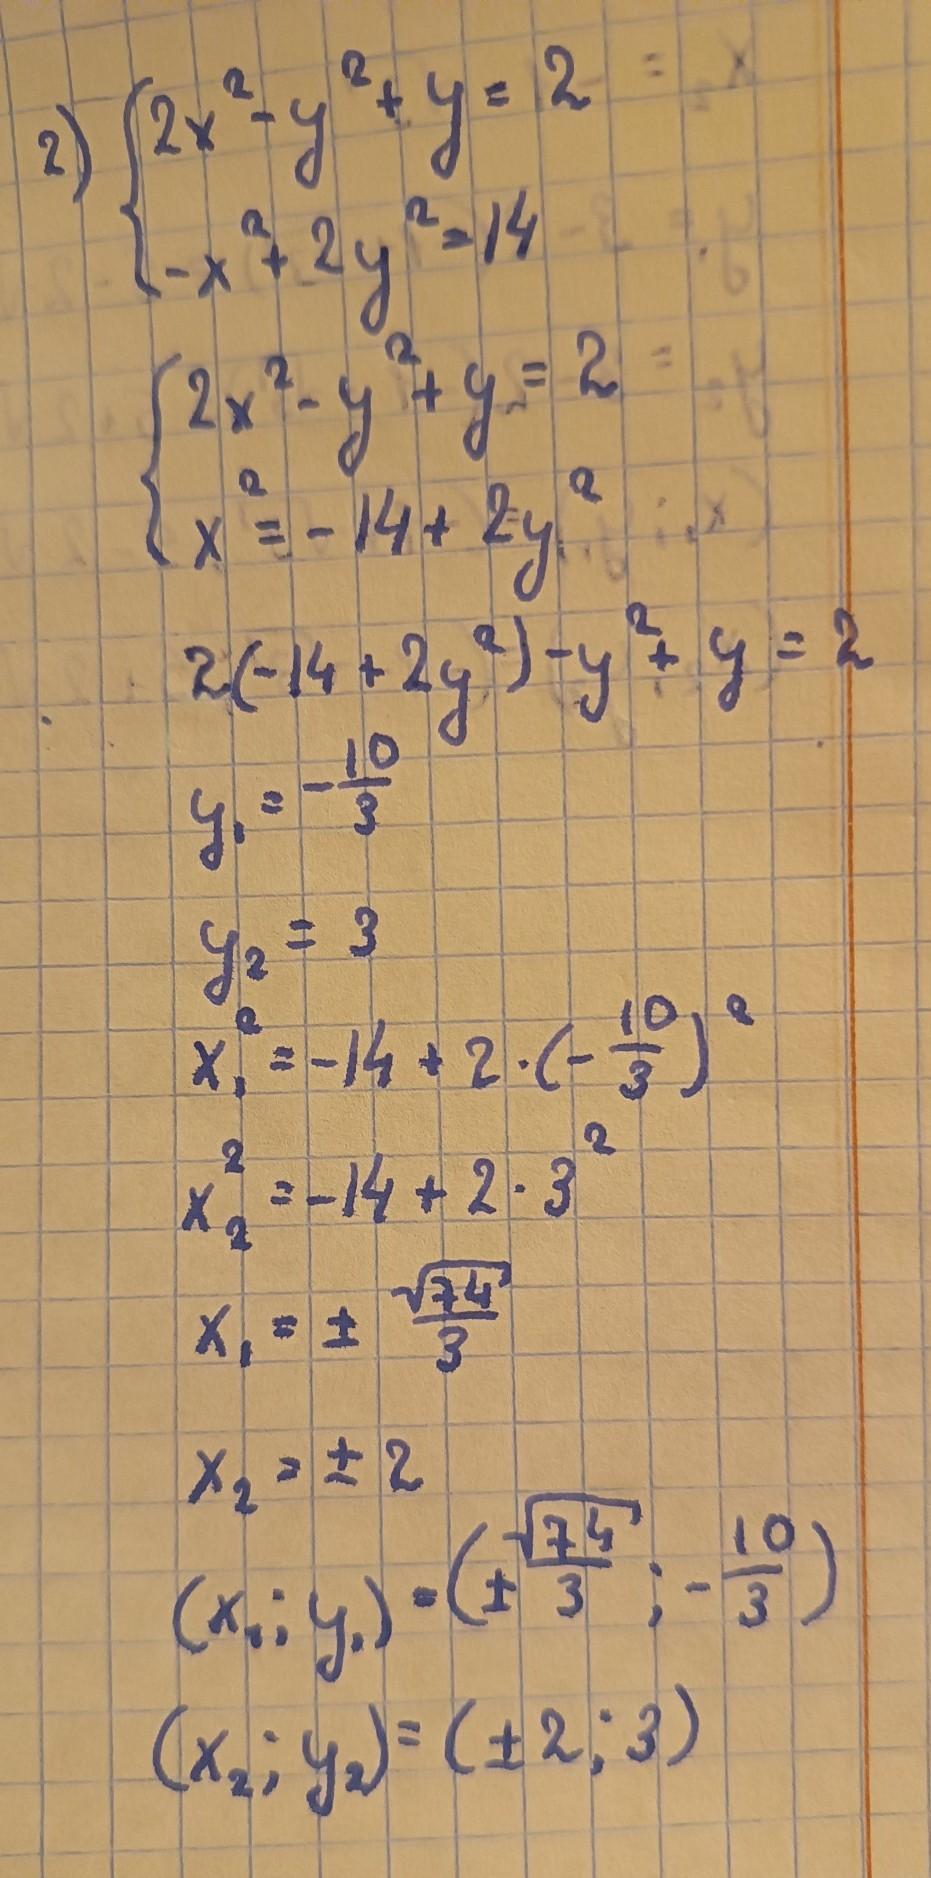 2) { 2x² - y² + y = 2
-x² + 2y² = 14
{ 2x² - y² + y = 2
x² = -14 + 2y²
2(-14 + 2y²) - y² + y = 2
y₁ = -10/3
y₂ = 3
x₁² = -14 + 2·(-10/3)²
x₂² = -14 + 2·3²
x₁ = ± √74/3
x₂ = ± 2
(x₁; y₁) = (± √74/3; -10/3)
(x₂; y₂) = (±2; 3)